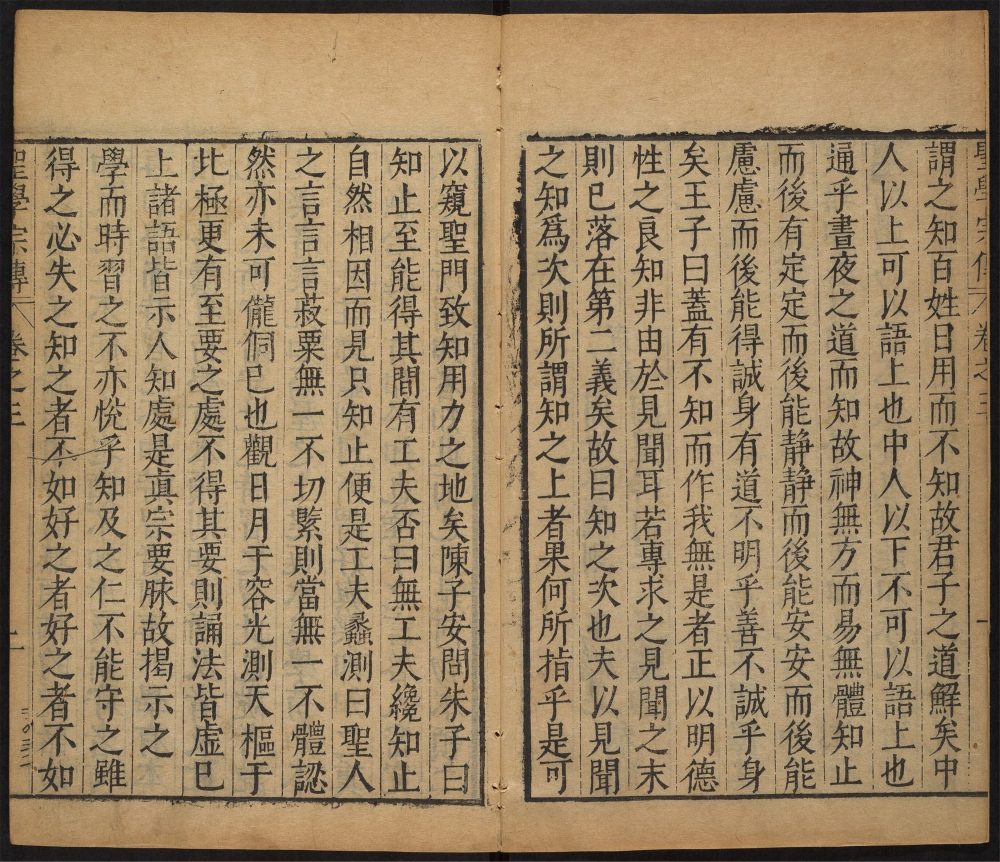 聖學宗傳 卷之三
謂之知百姓日用而不知故君子之道鮮矣中
人以上可以語上也中人以下不可以語上也
通乎晝夜之道而知故神無方而易無體知止
而後有定定而後能静静而後能安安而後能
慮慮而後能得誠身有道不明乎善不誠乎身
矣王子曰蓋有不知而作我無是者正以明德
性之良知非由於見聞耳若專求之見聞之末
則已落在第二義矣故曰知之次也夫以見聞
之知爲次則所謂知之上者果何所指乎是可
以窺聖門致知用力之地矣陳子安問朱子曰
知止至能得其間有工夫否曰無工夫纔知止
自然相因而見只知止便是工夫蠡測曰聖人
之言言言菽粟無一不切緊則當無一不體認
然亦未可儱侗已也觀日月于容光測天樞于
北極更有至要之處不得其要則誦法皆虛已
上諸語皆示人知處是眞宗要脉故揭示之
學而時習之不亦悅乎知及之仁不能守之雖
得之必失之知之者不如好之者好之者不如
聖學宗傳 卷之三